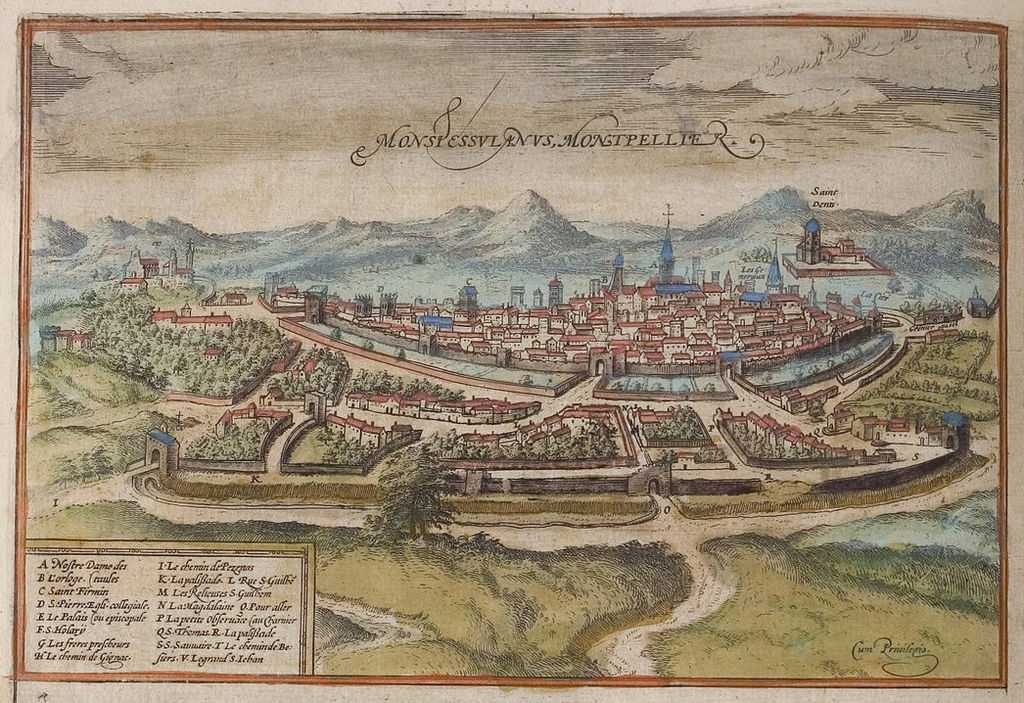 MONSPESSVLANVS, MONTPELLIER.
Saint
Denis
I
K
O
S
Q
P
A Nostre Dame des
B L'orloge. (taules
C Saint Firmin
D S. Pierre, Egli. collegiale,
E Le Palais (ou episcopale
F. S. Holary
G Les freres prescheurs
H Le chemin de Gignac.
I Le chemin de Pezenas
K La palissade. L Rue S. Guilhe
M Les Relieuses S. Guilhem
N La Magdalaine O. Pour aller
P La petite Observãce (au Charnier
Q S. Thomas. R. La palissade
S S. Sauvaire. T Le chemin de Be-
siers. V. Legrand S. Iehan
Cum Privilegio.